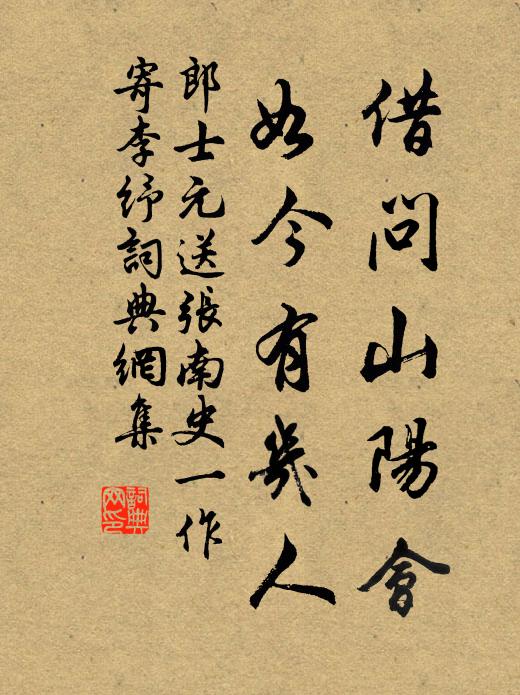 借问山陽會
如今有幾人
郎士元送張南史一作
寄李紓詞典網集
詞典网印